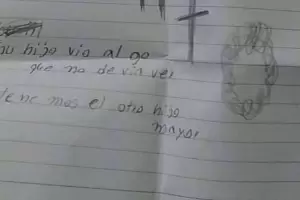 su hijo vio algo
que no devia ver
tenemos el otro hijo
mayor